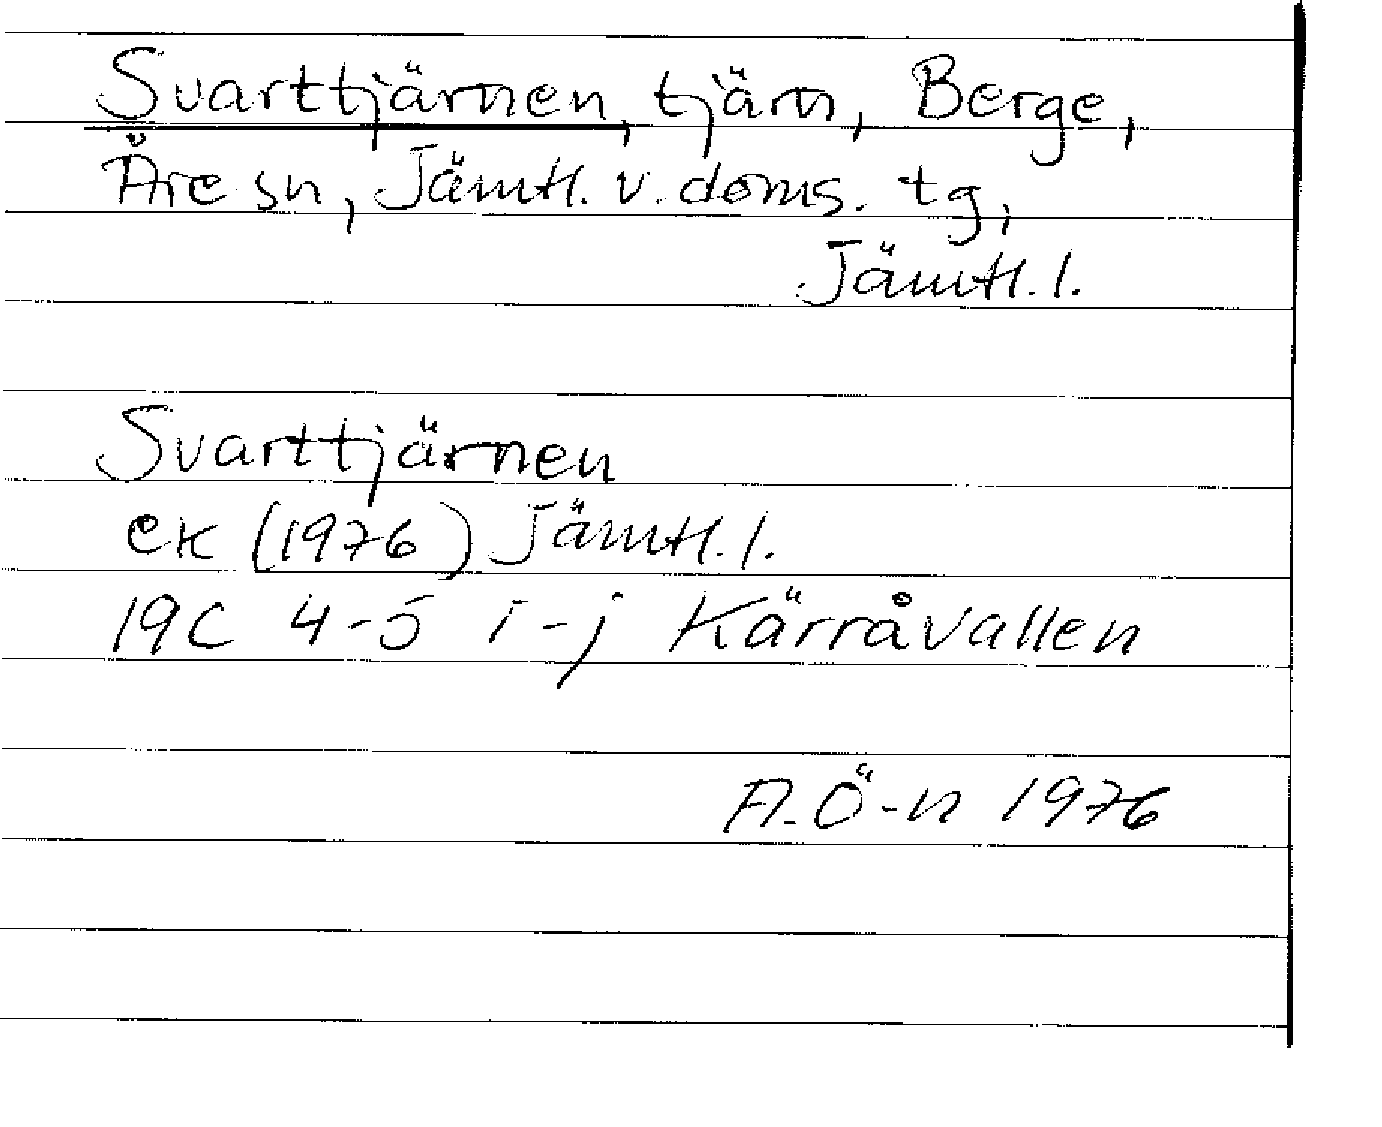 Svarttjärnen, tjärn, Berge,
Åre sn, Jämtl. v. doms. tg,
Jämtl. l.
Svarttjärnen
ek (1976) Jämtl. l.
19C 4-5 i-j Kärråvallen
A. Ö-n 1976